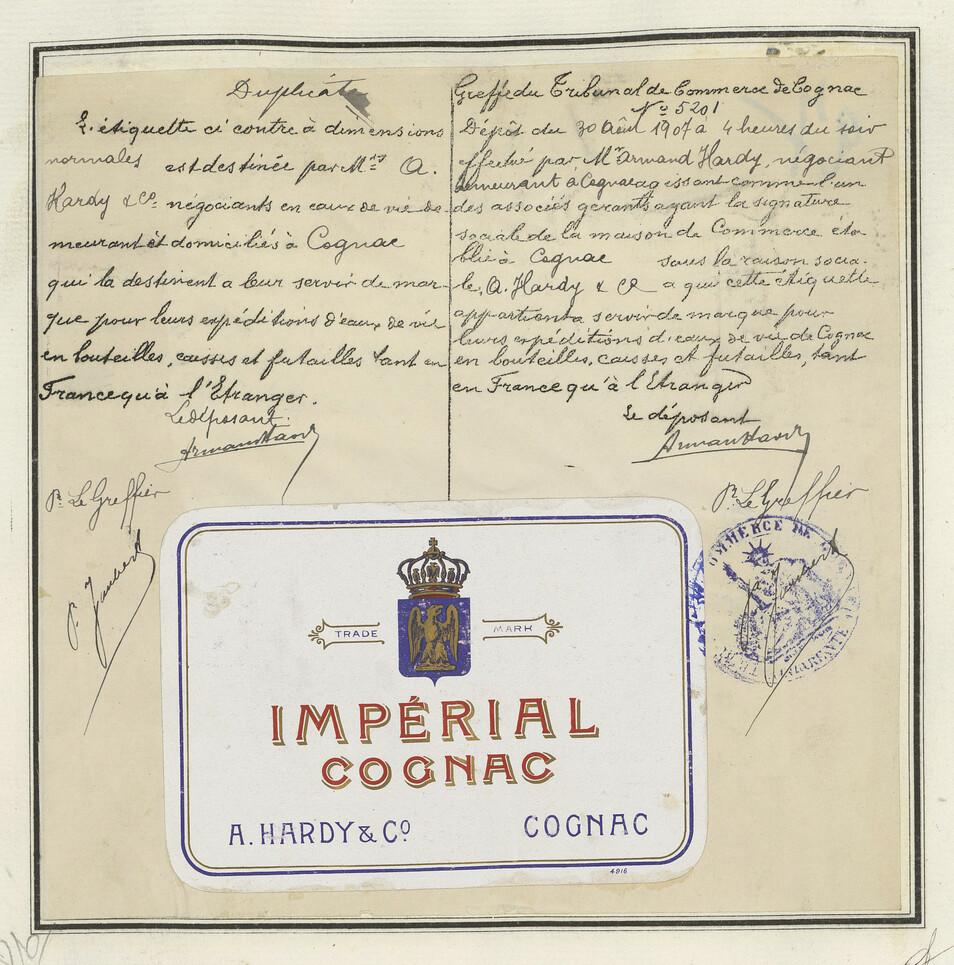 Duplicata
L'étiquette ci contre à dimensions
normales est destinée par Mrs A.
Hardy & Co. négociants en eaux de vie de-
meurant et domiciliés à Cognac
qui la destinent a leur servir de mar-
que pour leurs expéditions d'eaux de vie
en bouteilles, caisses et futailles tant en
France qu'à l'Etranger.
Le déposant
Armand Hardy
Pr. Le Greffier
P. Jaubert
Greffe du Tribunal de Commerce de Cognac
No 5201
Dépôt du 30 Août 1907 à 4 heures du soir
effectué par Mr Armand Hardy, négociant
demeurant à Cognac agissant comme l'un
des associés gerants ayant la signature
sociale de la maison de Commerce éta-
blie à Cognac sous la raison socia-
le, A. Hardy & Co a qui cette étiquette
appartient a servir de marque pour
leurs expéditions d'eaux de vie de Cognac
en bouteilles, caisses et futailles, tant
en France qu'à l'Etranger
Le déposant
Armand Hardy
Pr. Le Greffier
P. Jaubert
COMMERCE DE
CHARENTE
TRADE MARK
IMPÉRIAL
COGNAC
A. HARDY & Co COGNAC
4916